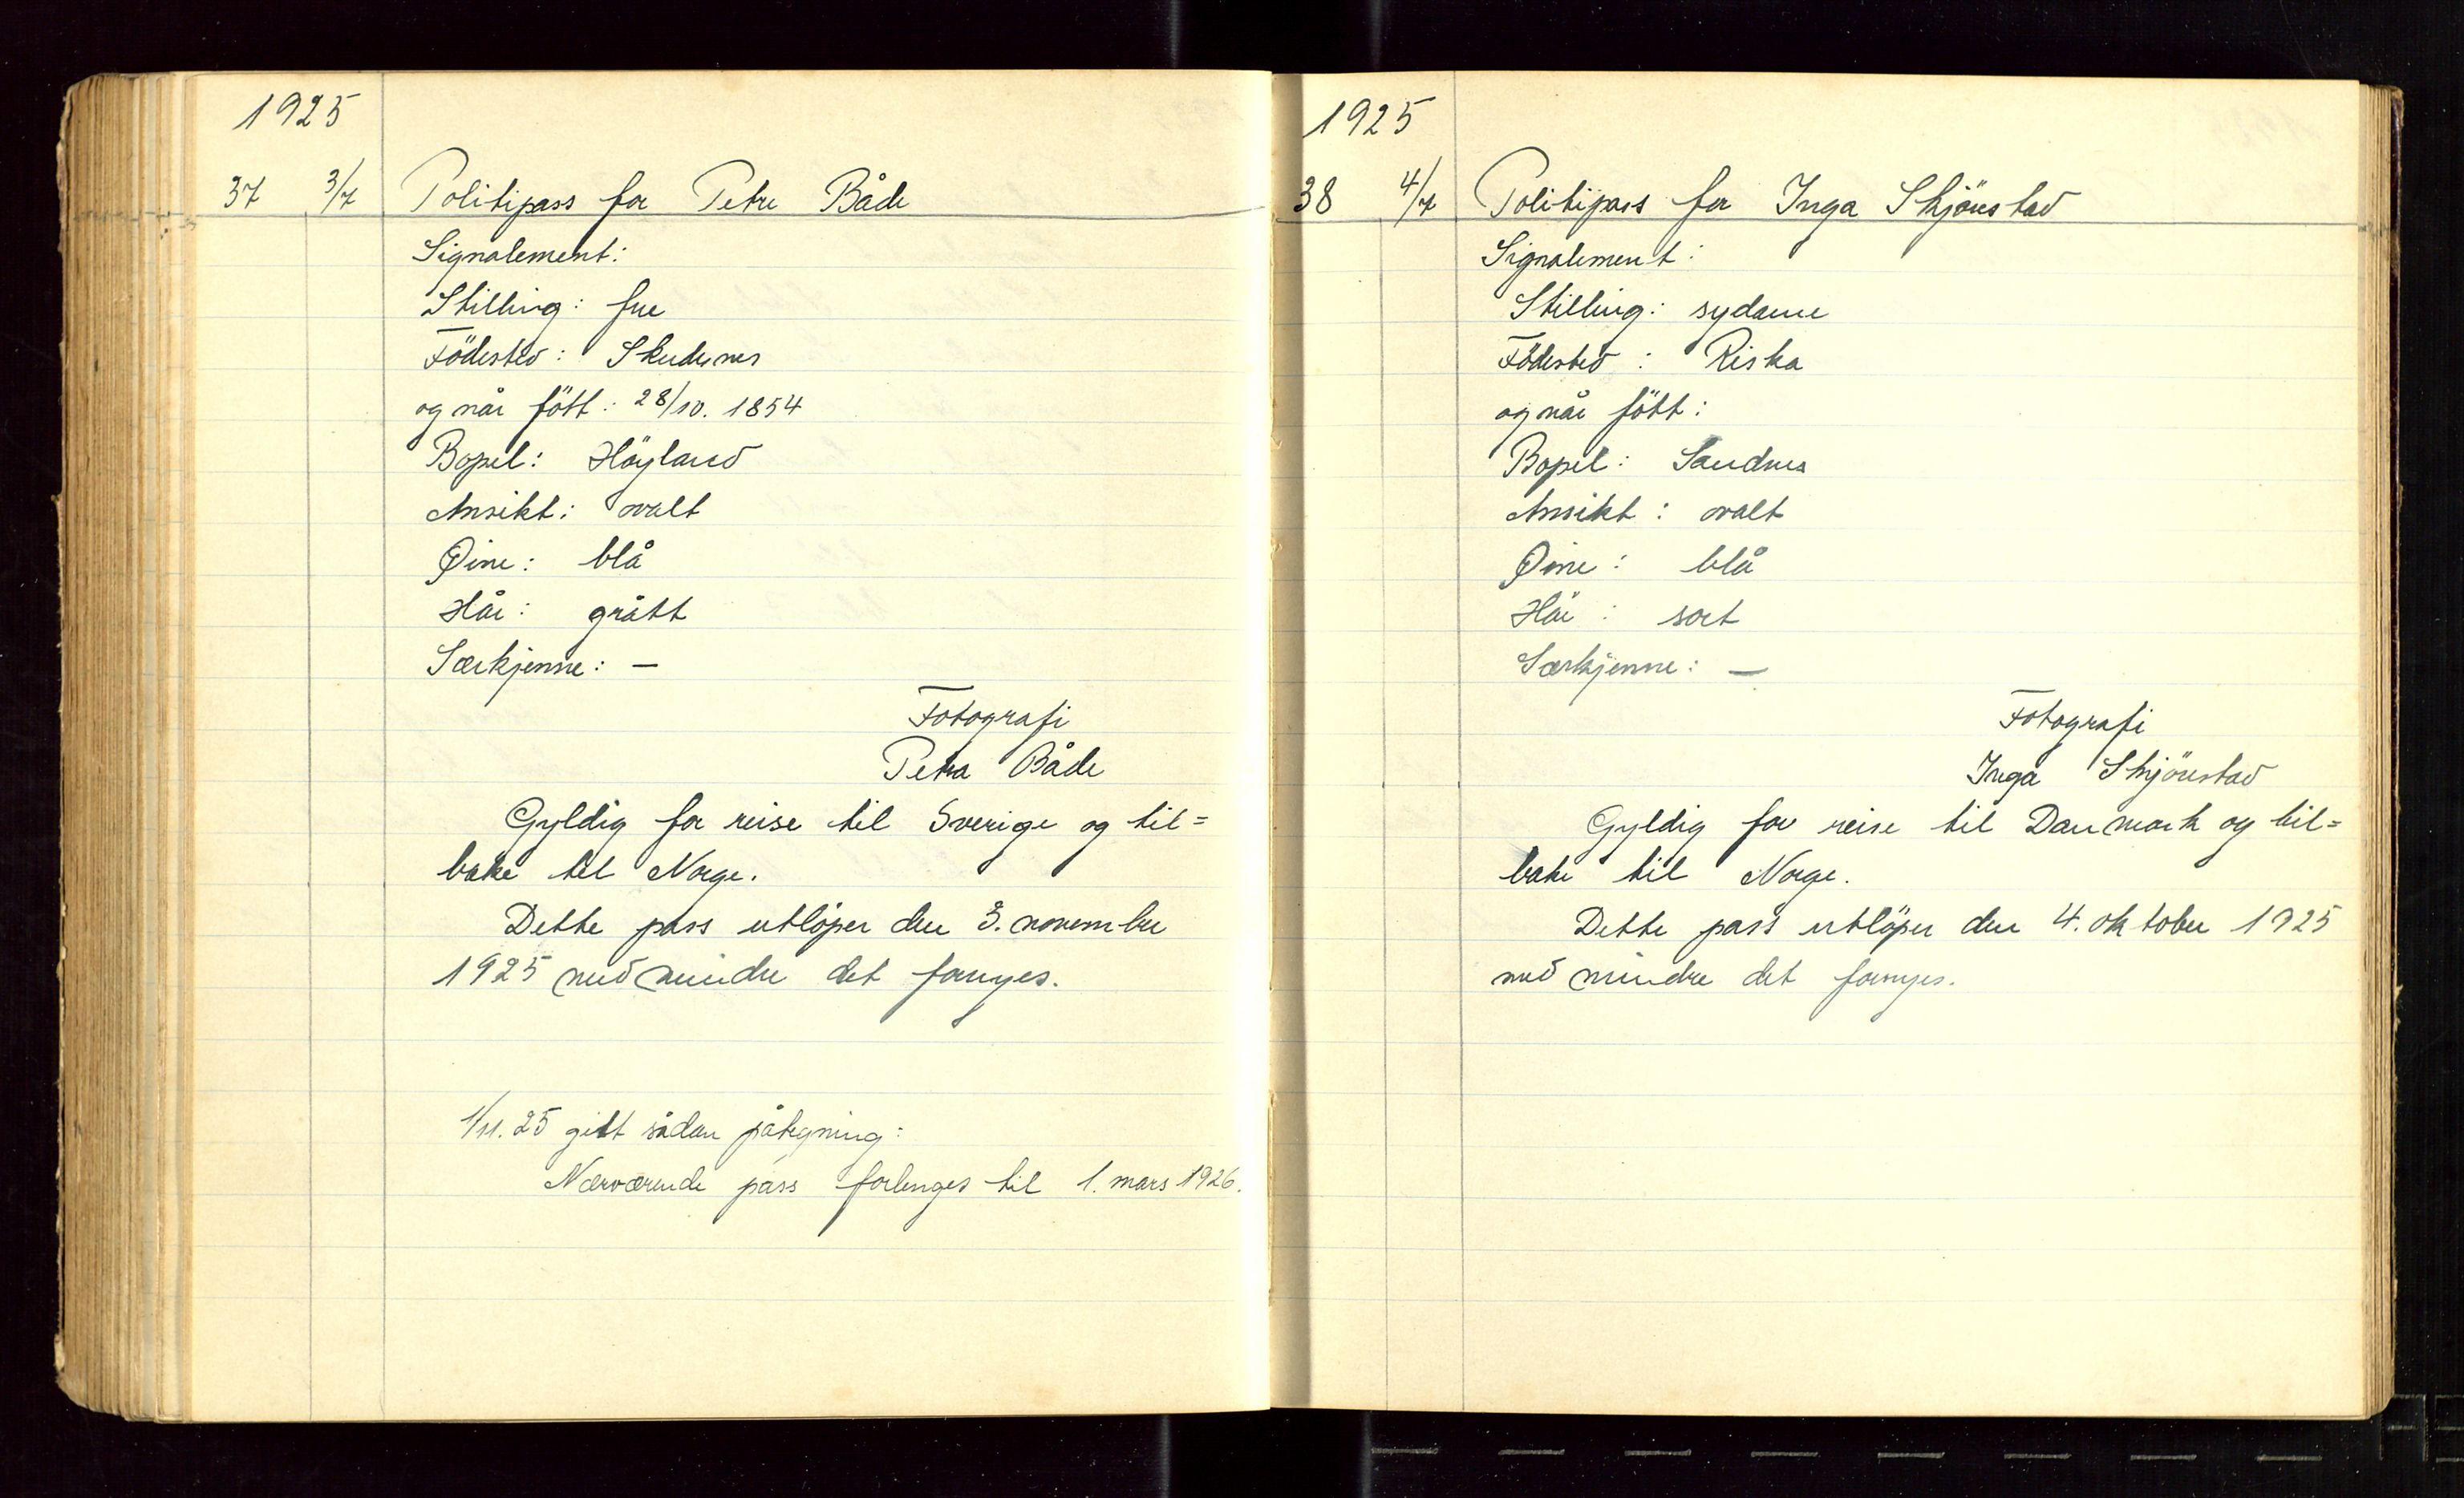 1925
37 3/7 Politipass for Petra Både
Signalement:
Stilling: frue
Födested: Skudenes
og når fött: 28/10. 1854
Bopel: Höyland
Ansikt: ovalt
Øine: blå
Hår: grått
Særkjenne: —
Fotografi
Petra Både
Gyldig for reise til Sverige og til=
bake til Norge.
Dette pass utlöper den 3. november
1925 med mindre det fornyes.
1/11. 25 gitt sådan påtegning:
Nærværende pass forlenges til 1. mars 1926.
1925
38 4/7 Politipass for Inga Skjörestad
Signalement:
Stilling: sydame
Födested: Riska
og når fött:
Bopel: Sandnes
Ansikt: ovalt
Øine: blå
Hår: sort
Særkjenne: —
Fotografi
Inga Skjörestad
Gyldig for reise til Danmark og til=
bake til Norge.
Dette pass utlöper den 4. oktober 1925
med mindre det fornyes.